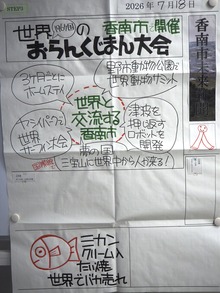 2026年7月18日
世界の
香南市で開催
おらんくじまん大会
香南市未来
3ヶ月ごとに
ホームステイ
動物公園で
世界動物サミット
世界と
交流する
香南市
ヤシィパークで
世界
サーフィン大会
津波を
押し返す
ロボットを
開発
三宝山に世界中から人が来る!
ミカン
クリーム入
たい焼
世界でバカ売れ